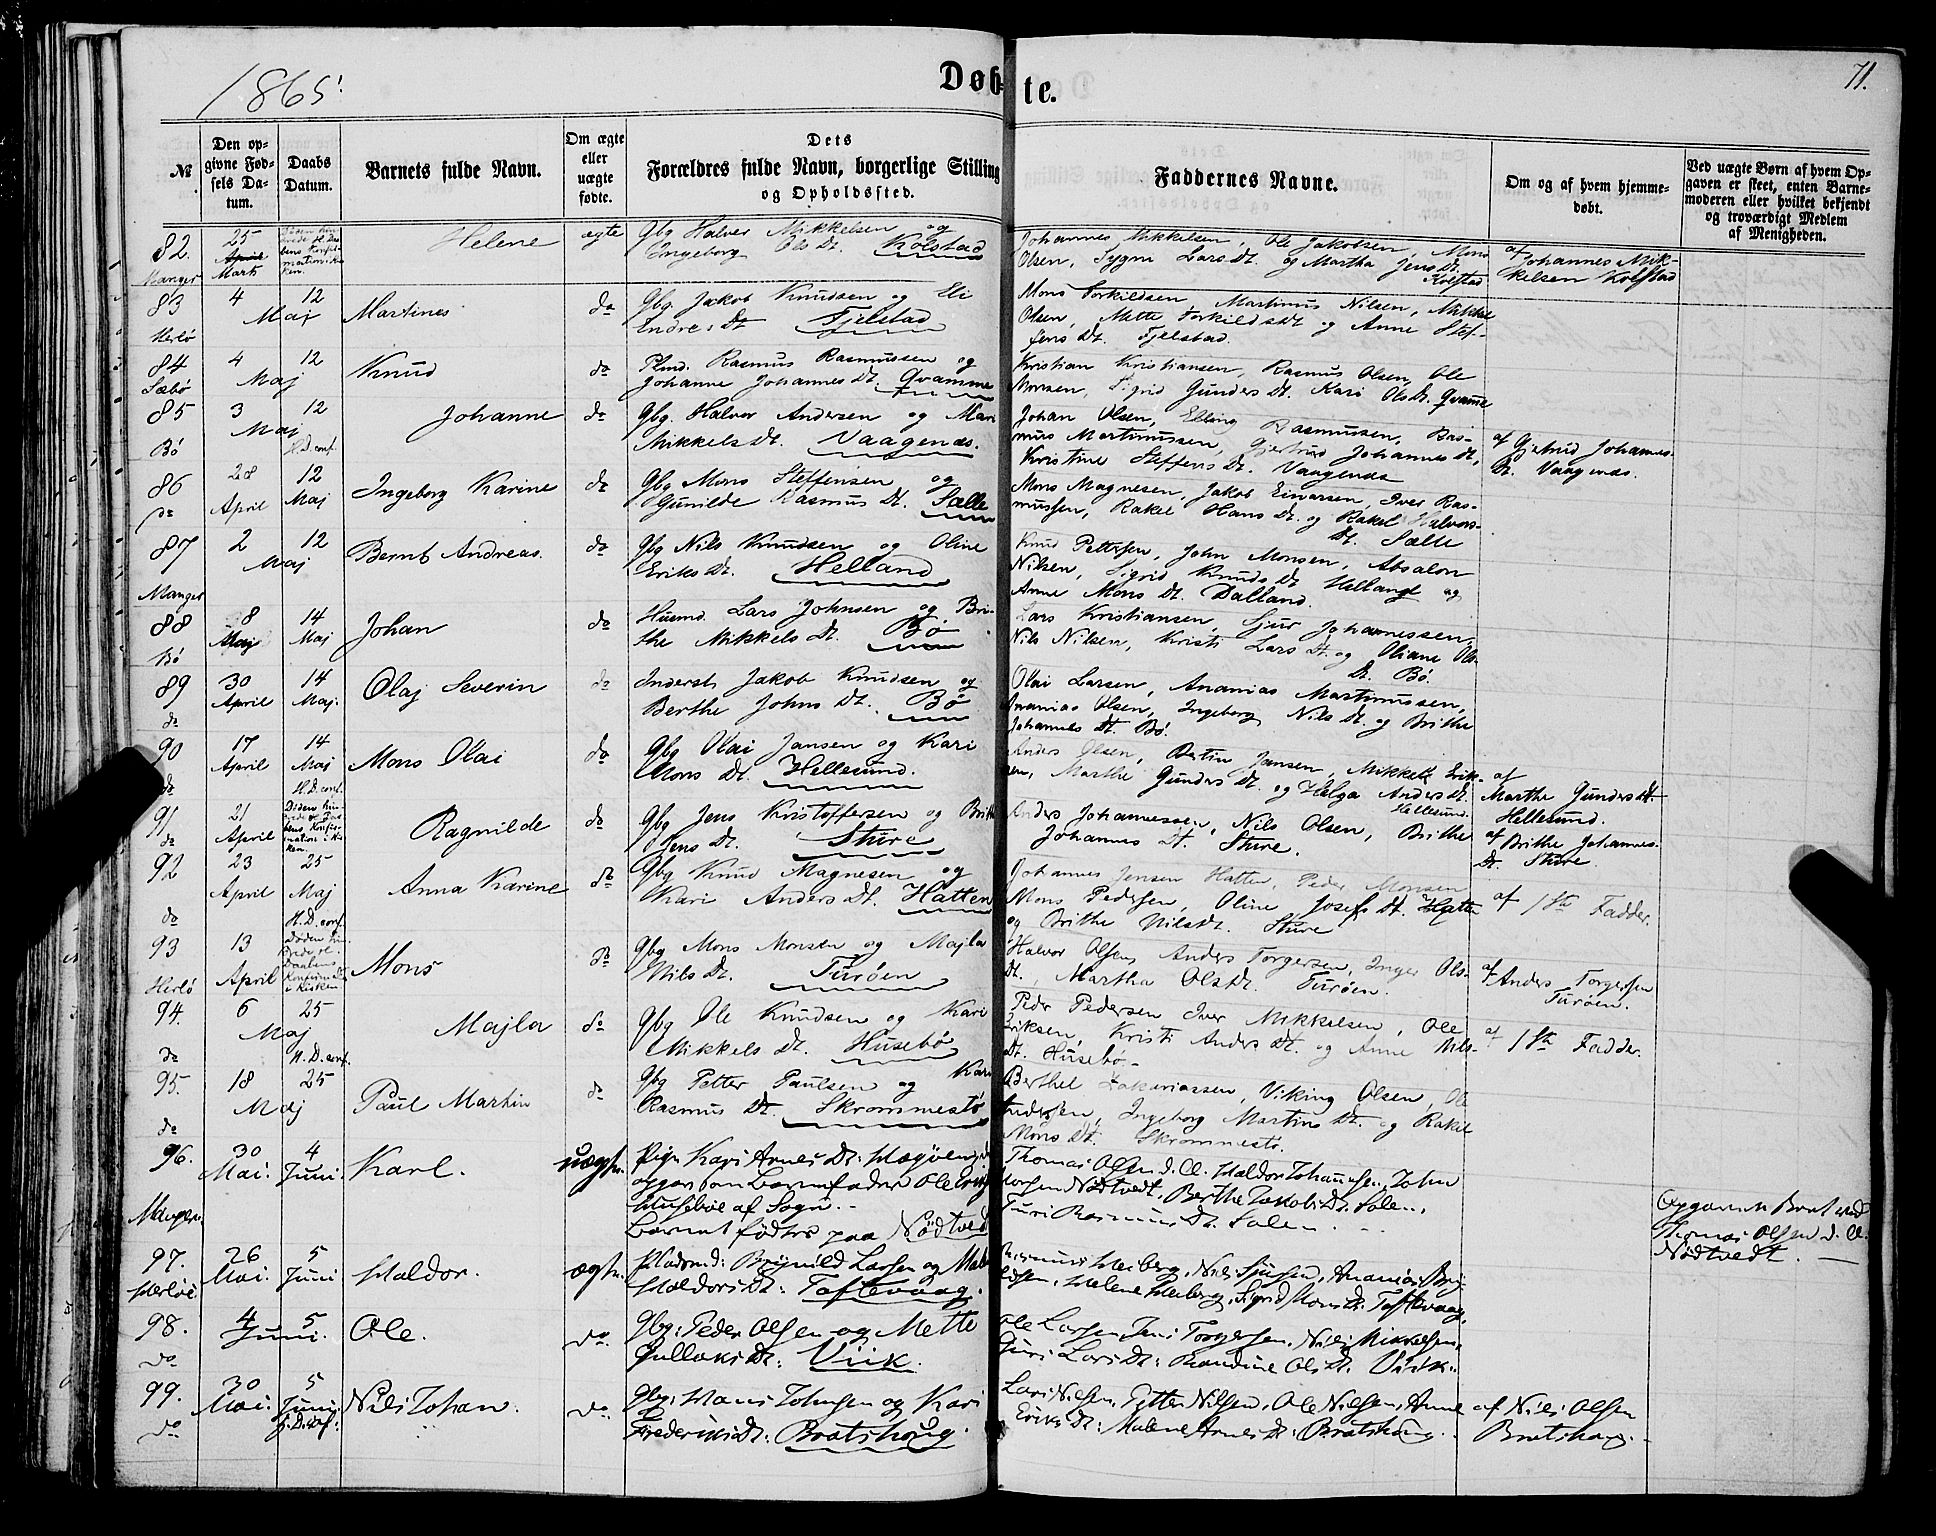 1865
Døb-
te.
71.
№
Den op-
givne Fød-
sels Da-
tum.
Daabs
Datum.
Barnets fulde Navn.
Om ægte
eller
uægte
fødte.
Dets
Forældres fulde Navn, borgerlige Stilling
og Opholdssted.
Faddernes Navne.
Om og af hvem hjemme-
døbt.
Ved uægte Børn af hvem Op-
gaven er skeet, enten Barne-
moderen eller hvilket bekjendt
og troværdigt Medlem
af Menigheden.
82.
Manger
25
April
Marts
Døden hin-
drede
mation i Kir-
ken.
Helene
ægte
Gbg Halver Mikkelsen og
Ingeborg Ols Dt. Kolstad
Johannes Mikkelsen, Ole Jakobsen, Mons
Olsen, Sygni Lars dt. og Martha Jens dt.
Kolstad
af
Johannes Mik-
kelsen Kolstad
83
Herlø
4 12
Maj
Martines
do
Gbg Jakob Knudsen og Eli
Endre: dt Fjelstad
Mons Torkildsen, Martinus Nilsen, Mikkel
Olsen, Mette Torkilds dt og Anne Stef-
fens dt. Fjelstad.
84
Sæbø
4 12
Maj
Knud
do
Plmd. Rasmus Rasmussen og
Johanne Johannes Dt. Qvamme
Kristian Kristiansen, Rasmus Olsen, Ole
Monsen, Sigrid Gunders dt. Kari Ols dt. Qvamme
85
Bø
3 12
Maj
H.D. conf.
Johanne
do
Gbg. Halvor Andersen og Mari
Mikkels dt. Vaagenæs.
Johan Olsen, Elling Rasmussen, Ras-
mus Martinussen, Gjertrud Johannes dt,
Kristine Steffens dt. Vaagenæs
af Gjertrud Johannes
Dt. Vaagenæs.
86
do
28
April
12
Maj
Ingeborg Karine
do
Gbg Mons Steffensen og
Gunilde Rasmus Dt. Sælle
Mons Magnesen, Jakob Einarsen, Iver Ras-
mussen, Rakel Hans dt. og Rakel Halvors-
dt. Sælle
87
Manger
2 12
Maj
Bernt Andreas.
do
Gbg Nils Knudsen og Oline
Eriks Dt. Helland
Knud Pettersen, John Monsen, Absalon
Nilsen, Sigrid Knuds dt Helland og
Anne Mons dt. Dalland.
88
Bø
8
Maj
14
Maj
Johan
do
Husmd. Lars Johnsen og Bri-
the Mikkels Dt. Bø
Lars Kristiansen, Sjur Johannessen,
Nils Nilsen, Kristi Lars dt. og Oliane Ols
dt. Bø.
89
do
30
April
14
Maj.
Olaj Severin
do
Inderst Jakob Knudsen og
Berthe Johns dt. Bø
Olai Larsen, Ananias Martinussen,
Ananias Olsen, Ingeborg Nils dt. og Brithe
Johannes dt. Bø.
90
do
17
April
14
Maj
H.D. conf.
Mons Olai
do
Gbg Olai Jansen og Kari
Mons Dt. Hellesund.
Anders Olsen, Jansen, Mikkel Erik-
sen, Marthe Gunders dt. og Helga Anders dt.
Hellesund.
af
Marthe Gunders dt.
Hellesund.
91
do
21
April
Døden hin-
drede
mation i Kir-
ken.
Ragnilde
do
Gbg Jens Kristoffersen og Brithe
Jens dt. Sture
Anders Johannessen, Nils Olsen, Brithe
Johannes dt. Sture.
af Brithe Johannes-
Dt. Sture.
92
do
23
April
25
Maj
H.D. conf.
Anna Karine
do
Gbg Knud Magnesen og
Kari Anders dt. Hatten
Johannes Jensen Hatten, Peder Monsen
Mons Pedersen, Oline Josefs dt. Hatten
og Brithe Nils dt. Sture
af 1ste Fadder.
93
Herlø
13
April
Døden hin-
drede
Daabens
Konfirmat.
i Kirken
Mons
do
Gbg Mons Monsen og Majla
Nils dt. Turøen
Halvor Olsen, Anders Torgersen, Inger Ols-
dt., Martha Ols dt. Turøen.
af Anders Torgersen
Turøen.
94.
do
6 25
Maj
H.D. conf.
Majla
do
Gbg Ole Knudsen og Kari
Mikkels Dt. Husebø
Peder Pedersen Iver Mikkelsen, Ole
Eriksen, Kristi Anders dt. og Anne Nils-
Dt. Husebø.
af 1ste Fadder.
95.
do
18 25
Maj
Paul Martin
do
Gbg Petter Paulsen og Kari
Rasmus Dt. Skrommestø
Berthel Zakariassen, Viking Olsen, Ole
Andersen, Ingeborg Martins dt. og Rakel
Mons dt. Skrommestø.
96.
Manger
30
Mai.
4
Juni.
Karl.
uægte.
Pige Kari Arnes Dt:
opgav som Barnefader Ole
Husebøe af Sogn.
Barnet fødtes paa Nødtved
Thomas Olsen d. Æ. Haldor Johannsen, John
Nødtvedt, Berthe Jakobs Dt. Solem,
Guri Rasmus Dt. Solem.
Thomas Olsen d. Æ.
Nødtvedt.
97.
Herløe
26
Mai.
5
Juni
Haldor.
ægte.
Brynild Larsen og
Haldors Dt: Toftevaag.
Heiberg, Nils Sjursen, Ananias Bry-
nildsen, Helene Heiberg, Sigrid Mons Dt. Toftevaag.
98.
do
4 5
Juni.
Ole.
do
Gbg: Peder Olsen og Mette
Gullaks Dt: Viik.
Ole Larsen Jens Torgersen, Nils Mikkelsen,
Guri Lars Dt: Randine Ols Dt. Viik.
99.
do
30
Mai.
5
Juni
H.D. conf.
Nils Johan.
do
Gbg: Hans Johnsen og Kari
Frederiks Dt: Bratshoug.
Lars Nielsen, Petter Nilsen, Ole Nilsen, Anne
Eriks Dt: Malene Arnes Dt: Bratshoug.
af Nils Olsen
Bratshoug.